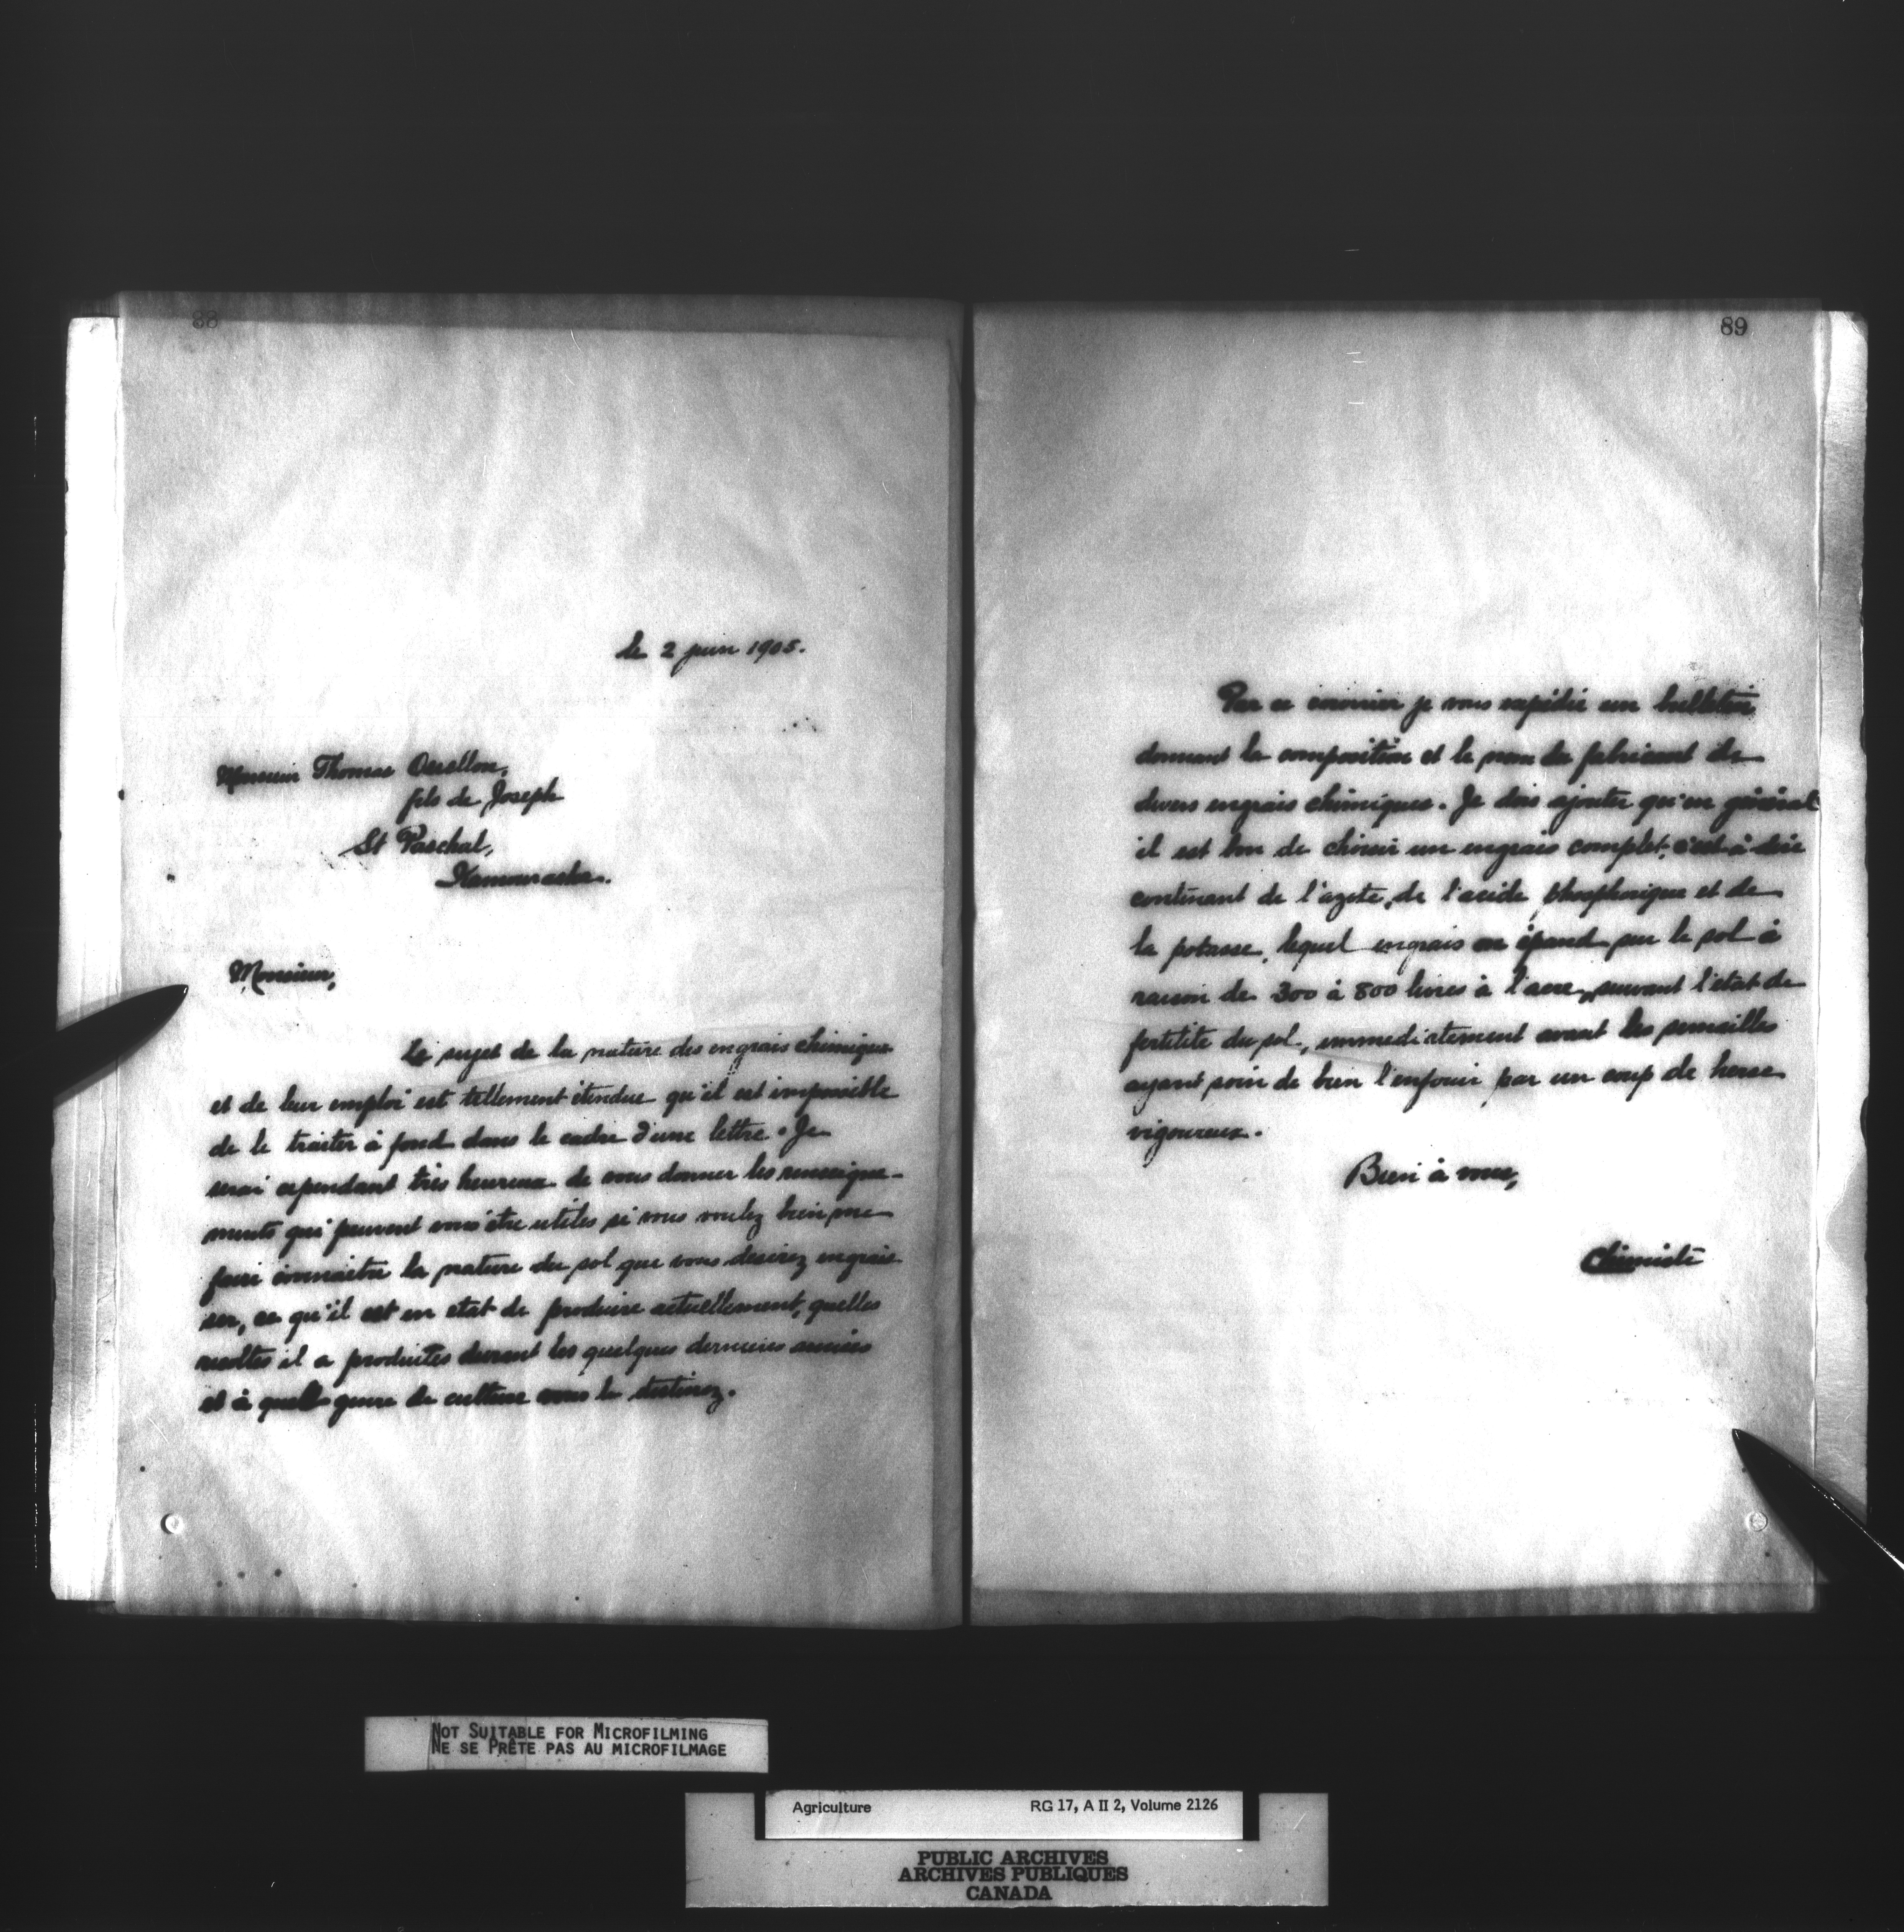 88
le 2 juin 1905.
Monsieur Thomas Ouellon,
fils de Joseph
St Paschal,
Kamouraska.
Monsieur,
Le sujet de la nature des engrais chimique
et de leur emploi est tellement étendue qu'il est impossible
de le traiter à fond dans le cadre d'une lettre. Je
serai cependant très heureux de vous donner les renseigne-
ments qui peuvent vous être utiles si vous voulez bien me
faire connaitre la nature du sol que vous desirez engrais
ser, ce qu'il est en état de produire actuellement, quelles
recoltes il a produites durant les quelques dernieres années
et à quel genre de culture vous le destinez.
89
Par ce courrier je vous expédie un bulletin
donnant la composition et le nom du fabricant de
divers engrais chimiques. Je dois ajouter qu'en général
il est bon de choisir un engrais complet, c'est à dire
contenant de l'azote, de l'acide phosphorique et de
la potasse, lequel engrais on épand sur le sol à
raison de 300 à 800 livres à l'acre, suivant l'état de
fertilité du sol, immediatement avant les semailles
ayant soin de bien l'enfouir par un coup de herse
vigoureux.
Bien à vous,
Chimiste
NOT SUITABLE FOR MICROFILMING
NE SE PRÊTE PAS AU MICROFILMAGE
Agriculture RG 17, A II 2, Volume 2126
PUBLIC ARCHIVES
ARCHIVES PUBLIQUES
CANADA